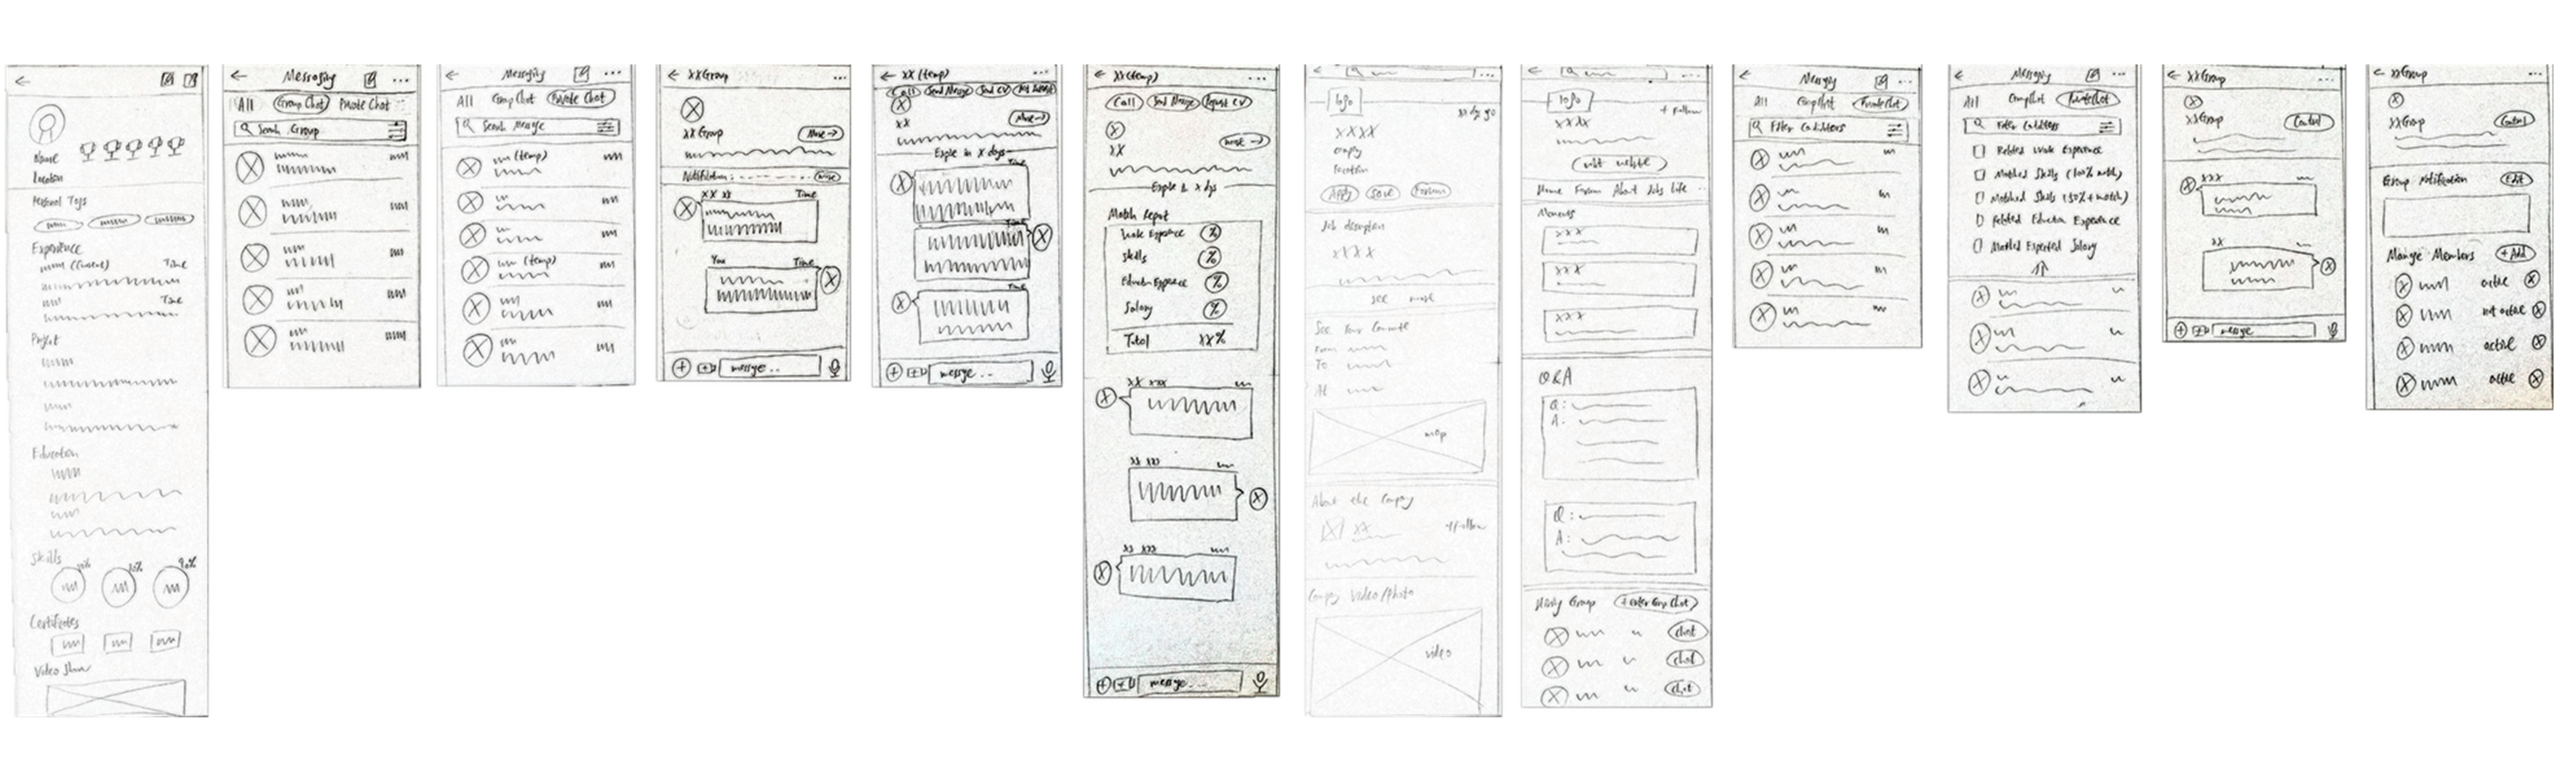 Name
Location
Personal Tags
Experience
(Current) Time
Time
Project
Education
Skills
90%
Certificates
Video Show
Messaging ...
All Group Chat Private Chat
Search Group
Messaging ...
All Group Chat Private Chat
Search Message
(temp)
(temp)
XX Group ...
XX Group More →
Notification: More
XX XX Time
You Time
message ..
XX (temp) ...
Call Send Message Send CV
XX More →
Expire in X days
Time
Time
Time
message ..
XX (temp) ...
Call Send Message Request CV
XX More →
Expire in X days
Match Report
Work Experience %
Skills %
Education Experience %
Salary %
Total XX%
XX XXX
XX XXX
XX XXX
message ...
logo
XXXX
company
location
Apply Save Forum
Job description
XXXX
see more
See Your Commute
From
To
At
map
About the Company
XX + Follow
Company Video/Photo
video
logo
+ Follow
XXXX
visit website
Home Forum About Jobs Life ..
Moments
XXX
XXX
XXX
Q&A
Q:
A:
Q:
A:
Group + Enter Group Chat
chat
chat
chat
Messaging ...
All Group Chat Private Chat
Filter Candidates
Messaging ...
All Group Chat Private Chat
Filter Candidates
Related Work Experience
Matched Skills (100% match)
Matched Skills (50%+ match)
Related Education Experience
Matched Expected Salary
XX Group ...
XX Group Control
XXX
XX
message
XX Group ...
XX Group Control
Group Notification Edit
Manage Members + Add
active
not active
active
active